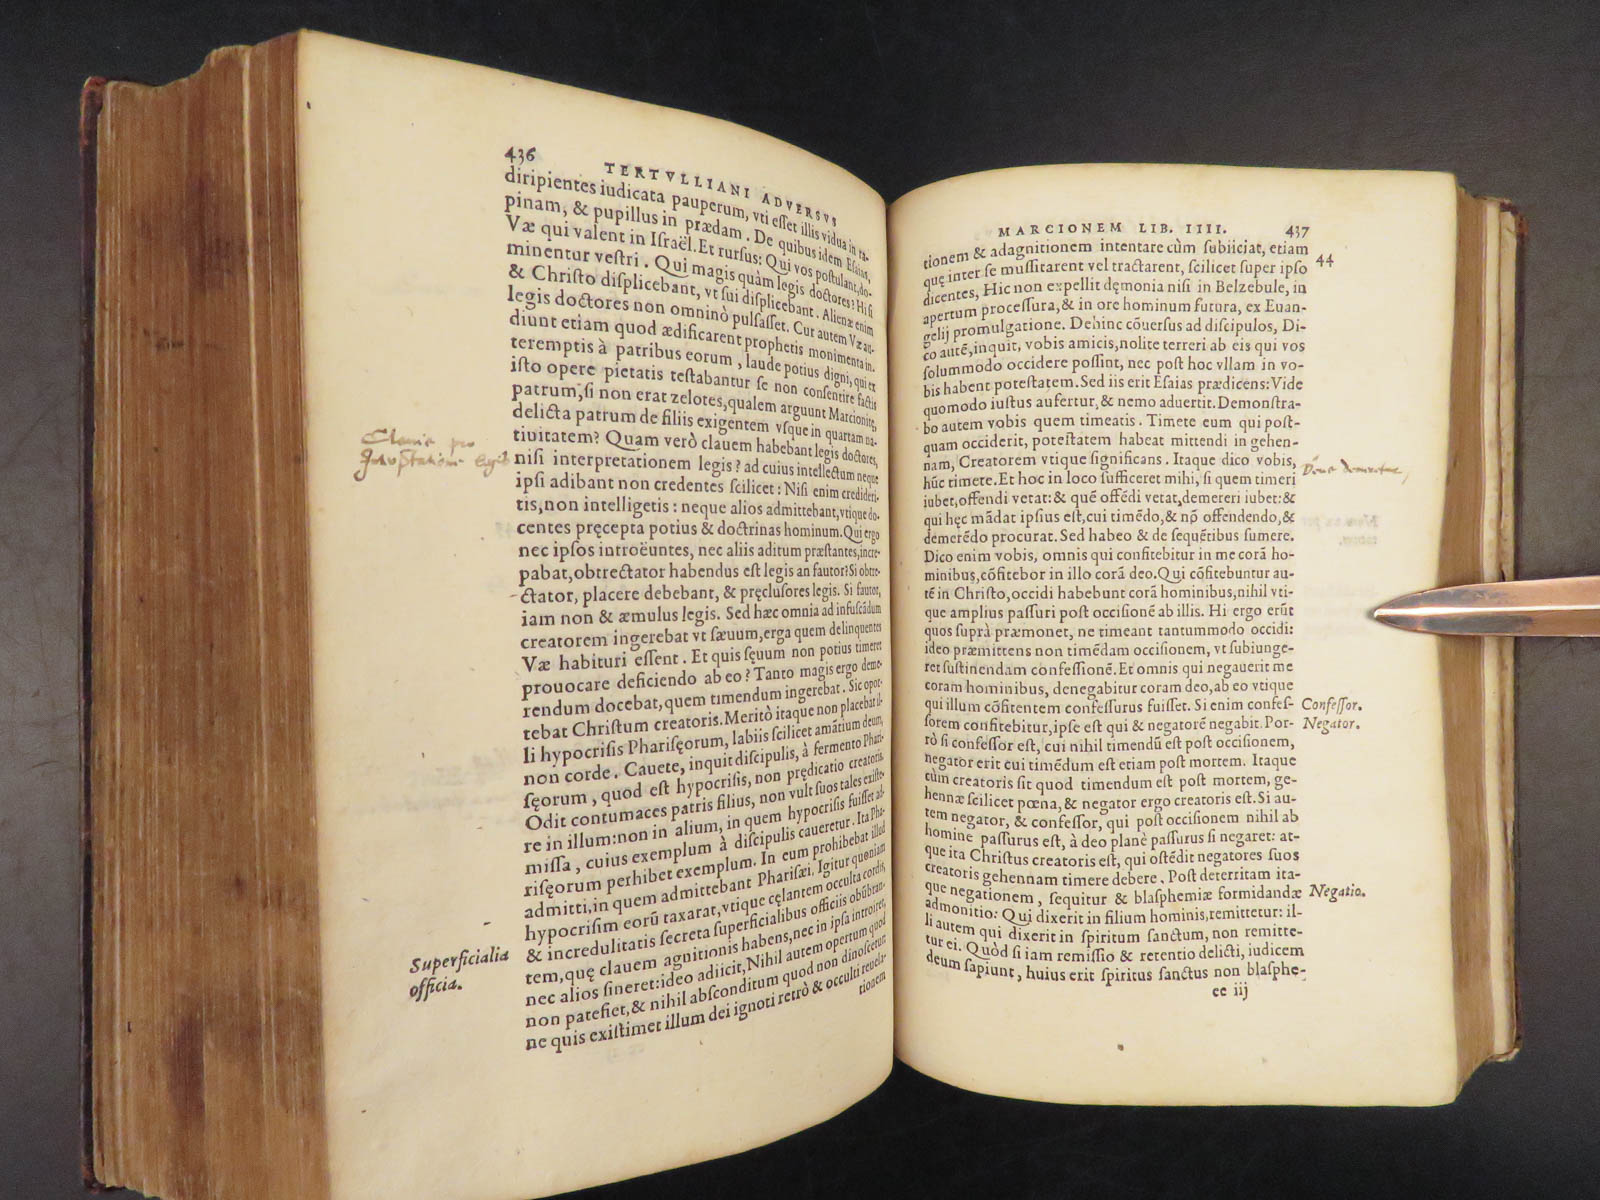 436
TERTVLLIANI ADVERSVS
diripientes iudicata pauperum, vti esset illis vidua in ra-
pinam, & pupillus in prædam. De quibus idem Esaias,
Væ qui valent in Israël. Et rursus: Qui vos postulant, do-
minentur vestri. Qui magis quàm legis doctores? Hi si
& Christo displicebant, vt sui displicebant. Alienæ enim
legis doctores non omninò pulsasset. Cur autem Væ au-
diunt etiam quod ædificarent prophetis monimenta in-
teremptis à patribus eorum, laude potius digni, qui ex
isto opere pietatis testabantur se non consentire factis
patrum, si non erat zelotes, qualem arguunt Marcionitę,
delicta patrum de filiis exigentem vsque in quartam na-
tiuitatem? Quam verò clauem habebant legis doctores,
nisi interpretationem legis? ad cuius intellectum neque
ipsi adibant non credentes scilicet: Nisi enim credideri-
tis, non intelligetis: neque alios admittebant, vtique do-
centes pręcepta potius & doctrinas hominum. Qui ergo
nec ipsos introëuntes, nec aliis aditum præstantes, incre-
pabat, obtrectator habendus est legis an fautor? Si obtre-
ctator, placere debebant, & pręclusores legis. Si fautor,
iam non & æmulus legis. Sed hæc omnia ad infuscādum
creatorem ingerebat vt sæuum, erga quem delinquentes
Væ habituri essent. Et quis sęuum non potius timeret
prouocare deficiendo ab eo? Tanto magis ergo deme-
rendum docebat, quem timendum ingerebat. Sic opor-
tebat Christum creatoris. Meritò itaque non placebat il-
li hypocrisis Pharisęorum, labiis scilicet amātium deum,
non corde. Cauete, inquit discipulis, à fermento Phari-
sęorum, quod est hypocrisis, non prędicatio creatoris.
Odit contumaces patris filius, non vult suos tales existe-
re in illum: non in alium, in quem hypocrisis fuisset ad-
missa, cuius exemplum à discipulis caueretur. Ita Pha-
risęorum perhibet exemplum. In eum prohibebat illud
admitti, in quem admittebant Pharisæi. Igitur quoniam
hypocrisim eorū taxarat, vtique cęlantem occulta cordis,
& incredulitatis secreta superficialibus officiis obūbran-
tem, quę clauem agnitionis habens, nec in ipsa introiret,
nec alios sineret: ideo adiicit, Nihil autem opertum quod
non patefiet, & nihil absconditum quod non dinoscetur:
ne quis existimet illum dei ignoti retrò & occulti reuela-
tionem
Clauis pro
Interpretatione legis
Superficialia
officia.
MARCIONEM LIB. IIII. 437
tionem & adagnitionem intentare cùm subiiciat, etiam
quę inter se mussitarent vel tractarent, scilicet super ipso
dicentes, Hic non expellit dęmonia nisi in Belzebule, in
apertum processura, & in ore hominum futura, ex Euan-
gelij promulgatione. Dehinc cōuersus ad discipulos, Di-
co autē, inquit, vobis amicis, nolite terreri ab eis qui vos
solummodo occidere possint, nec post hoc vllam in vo-
bis habent potestatem. Sed iis erit Esaias prædicens: Vide
quomodo iustus aufertur, & nemo aduertit. Demonstra-
bo autem vobis quem timeatis. Timete eum qui post-
quam occiderit, potestatem habeat mittendi in gehen-
nam, Creatorem vtique significans. Itaque dico vobis,
hūc timete. Et hoc in loco sufficeret mihi, si quem timeri
iubet, offendi vetat: & quē offēdi vetat, demereri iubet: &
qui hęc mādat ipsius est, cui timēdo, & nō offendendo, &
demerēdo procurat. Sed habeo & de sequētibus sumere.
Dico enim vobis, omnis qui confitebitur in me corā ho-
minibus, cōfitebor in illo corā deo. Qui cōfitebuntur au-
tē in Christo, occidi habebunt corā hominibus, nihil vti-
que amplius passuri post occisionē ab illis. Hi ergo erūt
quos suprà præmonet, ne timeant tantummodo occidi:
ideo præmittens non timēdam occisionem, vt subiunge-
ret sustinendam confessionē. Et omnis qui negauerit me
coram hominibus, denegabitur coram deo, ab eo vtique
qui illum cōfitentem confessurus fuisset. Si enim confes-
sorem confitebitur, ipse est qui & negatorē negabit. Por-
rò si confessor est, cui nihil timendū est post occisionem,
negator erit cui timēdum est etiam post mortem. Itaque
cùm creatoris sit quod timendum est post mortem, ge-
hennæ scilicet pœna, & negator ergo creatoris est. Si au-
tem negator, & confessor, qui post occisionem nihil ab
homine passurus est, à deo planè passurus si negaret: at-
que ita Christus creatoris est, qui ostēdit negatores suos
creatoris gehennam timere debere. Post deterritam ita-
que negationem, sequitur & blasphemiæ formidandæ
admonitio: Qui dixerit in filium hominis, remittetur: il-
li autem qui dixerit in spiritum sanctum, non remitte-
tur ei. Quòd si iam remissio & retentio delicti, iudicem
deum sapiunt, huius erit spiritus sanctus non blasphe-
ee iij
44
Confessor.
Negator.
Negatio.